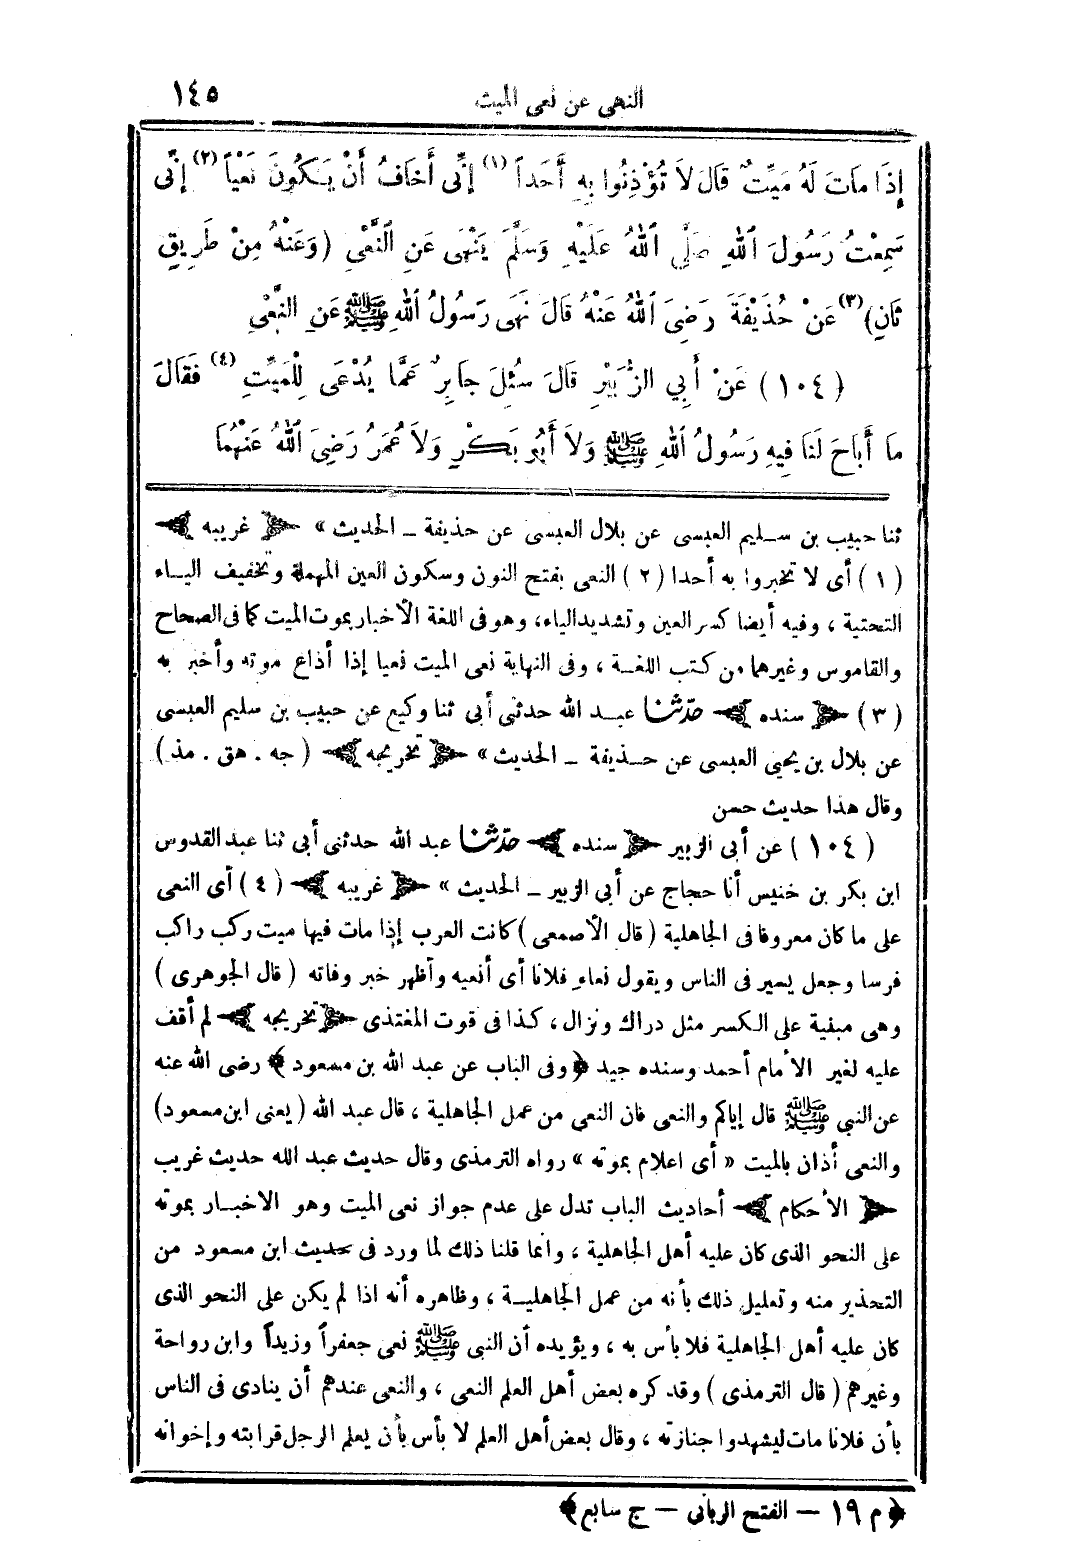 النهى عن نعى الميت ١٤٥
إِذَا مَاتَ لَهُ مَيِّتٌ قَالَ لَا تُؤْذِنُوا بِهِ أَحَداً (١) إِنِّى أَخَافُ أَنْ يَكُونَ نَعْياً (٢) إِنِّى
سَمِعْتُ رَسُولَ اللهِ صَلَّى اللهُ عَلَيْهِ وَسَلَّمَ يَنْهَى عَنِ النَّعْىِ (وَعَنْهُ مِنْ طَرِيقٍ
ثَانٍ) (٣) عَنْ حُذَيْفَةَ رَضِىَ اللهُ عَنْهُ قَالَ نَهَى رَسُولُ اللهِ ﷺ عَنِ النَّعْىِ
(١٠٤) عَنْ أَبِي الزُّبَيْرِ قَالَ سُئِلَ جَابِرٌ عَمَّا يُدْعَى لِلْمَيِّتِ (٤) فَقَالَ
مَا أَبَاحَ لَنَا فِيهِ رَسُولُ اللهِ ﷺ وَلاَ أَبُو بَكْرٍ وَلاَ عُمَرُ رَضِىَ اللهُ عَنْهُمَا
ثنا حبيب بن سليم العبسى عن بلال العبسى عن حذيفة ــ الحديث » ﴿ غريبه ﴾
(١) أى لا تخبروا به أحدا (٢) النعى بفتح النون وسكون العين المهملة وتخفيف الياء
التحتية ، وفيه أيضا كسر العين وتشديد الياء، وهو فى اللغة الأخبار بموت الميت كما فى الصحاح
والقاموس وغيرهما من كتب اللغة ، وفى النهاية نعى الميت نعيا إذا أذاع موته وأخبر به
(٣) ﴿ سنده ﴾ حدّثنا عبد الله حدثنى أبى ثنا وكيع عن حبيب بن سليم العبسى
عن بلال بن يحيى العبسى عن حذيفة ــ الحديث » ﴿ تخريجه ﴾ ( جه . هق . مذ )
وقال هذا حديث حسن
(١٠٤) عن أبى الزبير ﴿ سنده ﴾ حدّثنا عبد الله حدثنى أبى ثنا عبد القدوس
ابن بكر بن خنيس أنا حجاج عن أبى الزبير ــ الحديث » ﴿ غريبه ﴾ (٤) أى النعى
على ما كان معروفا فى الجاهلية ( قال الأصمعى ) كانت العرب إذا مات فيها ميت ركب راكب
فرسا وجعل يسير فى الناس ويقول نعاء فلانا أى أنعيه وأظهر خبر وفاته ( قال الجوهرى )
وهى مبنية على الكسر مثل دراك ونزال ، كذا فى قوت المغتذى ﴿ تخريجه ﴾ لم أقف
عليه لغير الأمام أحمد وسنده جيد ﴿ وفى الباب عن عبد الله بن مسعود ﴾ رضى الله عنه
عن النبي ﷺ قال إياكم والنعى فان النعى من عمل الجاهلية ، قال عبد الله ( يعنى ابن مسعود)
والنعى أذان بالميت « أى اعلام بموته » رواه الترمذى وقال حديث عبد الله حديث غريب
﴿ الأحكام ﴾ أحاديث الباب تدل على عدم جواز نعى الميت وهو الاخبار بموته
على النحو الذى كان عليه أهل الجاهلية ، وانما قلنا ذلك لما ورد فى حديث ابن مسعود من
التحذير منه وتعليل ذلك بأنه من عمل الجاهلية ، وظاهره أنه اذا لم يكن على النحو الذى
كان عليه أهل الجاهلية فلا بأس به ، ويؤيده أن النبى ﷺ نعى جعفراً وزيداً وابن رواحة
وغيرهم ( قال الترمذى ) وقد كره بعض أهل العلم النعى ، والنعى عندهم أن ينادى فى الناس
بأن فلانا مات ليشهدوا جنازته ، وقال بعض أهل العلم لا بأس بأن يعلم الرجل قرابته وإخوانه
﴿ م ١٩ — الفتح الربانى — ج سابع ﴾